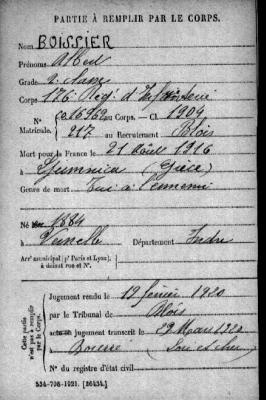 PARTIE À REMPLIR PAR LE CORPS.
Nom BOISSIER
Prénoms Abel
Grade
Corps 176e Rég. d'Infanterie
N° 016962 au Corps. — Cl. 1904
Matricule. 217 au Recrutement Blois
Mort pour la France le 21 Août 1916
à (Grèce)
Genre de mort Tué à l'ennemi
Né en 1884
à Département Indre
Arrt municipal (pr Paris et Lyon),
à défaut rue et N°.
Cette partie
n'est pas à remplir
par le Corps.
Jugement rendu le 19 février 1920
par le Tribunal de Blois
acte ou jugement transcrit le 29 Mars 1920
à (Loir et Cher)
N° du registre d'état civil
534-708-1921. [26434.]